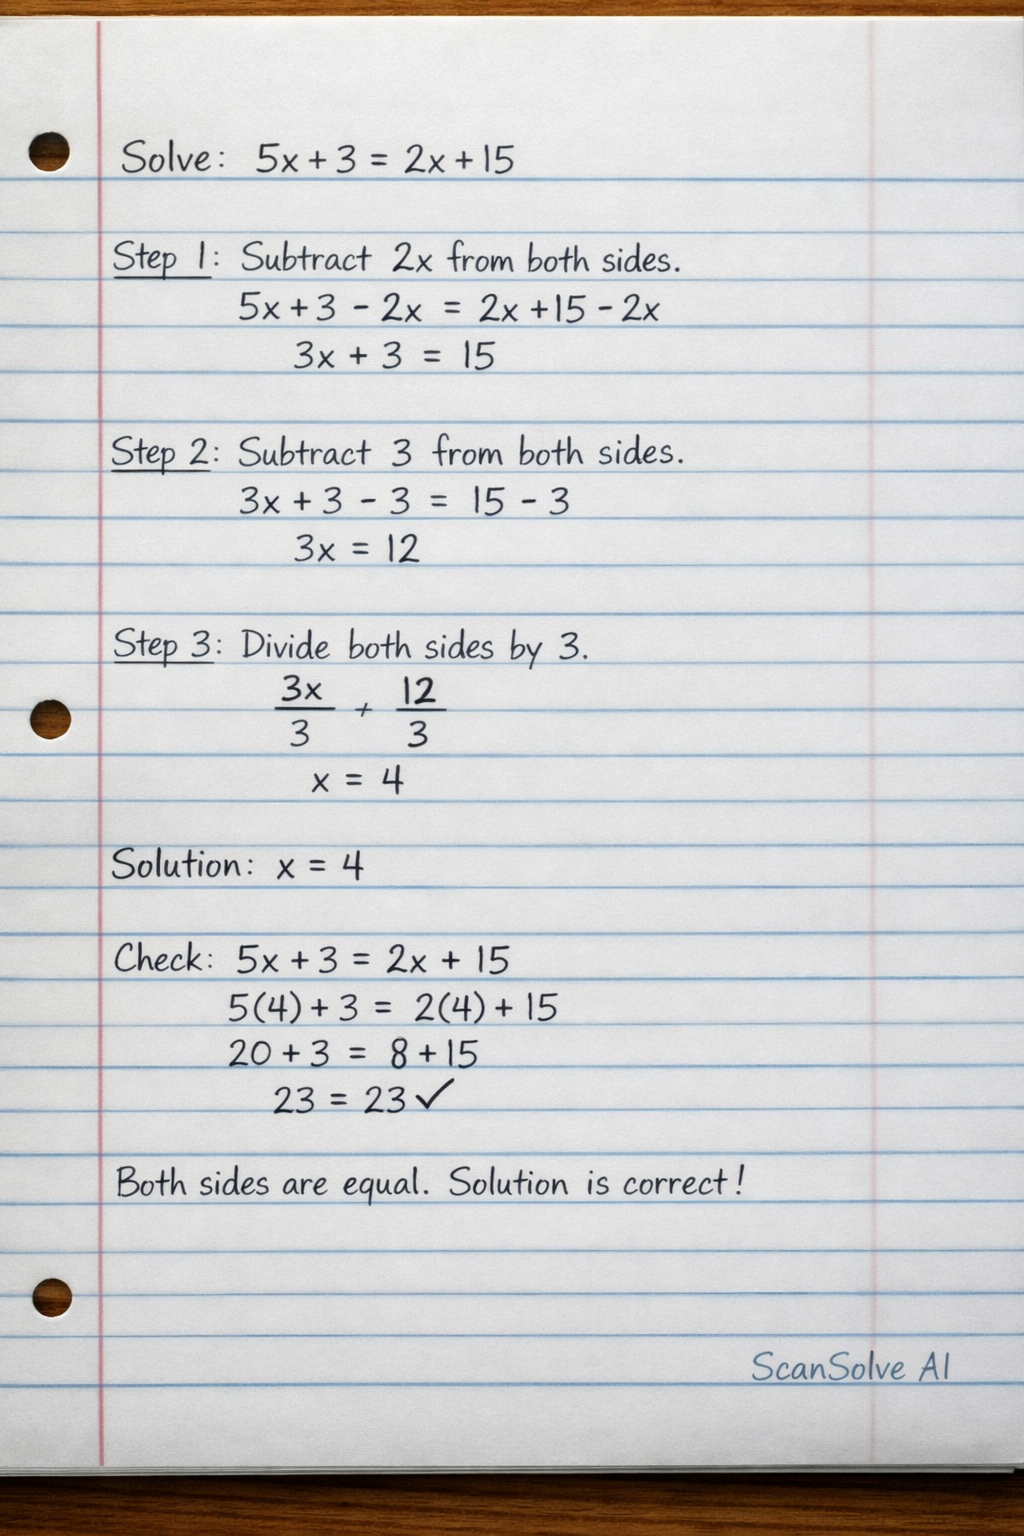 Solve: 5x + 3 = 2x + 15
Step 1: Subtract 2x from both sides.
5x + 3 - 2x = 2x + 15 - 2x
3x + 3 = 15
Step 2: Subtract 3 from both sides.
3x + 3 - 3 = 15 - 3
3x = 12
Step 3: Divide both sides by 3.
3x/3 + 12/3
x = 4
Solution: x = 4
Check: 5x + 3 = 2x + 15
5(4) + 3 = 2(4) + 15
20 + 3 = 8 + 15
23 = 23 ✓
Both sides are equal. Solution is correct!
ScanSolve AI